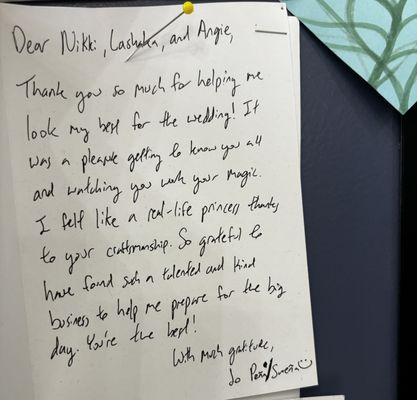 Dear Nikki, Lashaken, and Angie,
Thank you so much for helping me
look my best for the wedding! It
was a pleasure getting to know you all
and watching you work your magic.
I felt like a real-life princess thanks
to your craftsmanship. So grateful to
have found such a talented and kind
business to help me prepare for the big
day. You're the best!
With much gratitude,
Jo